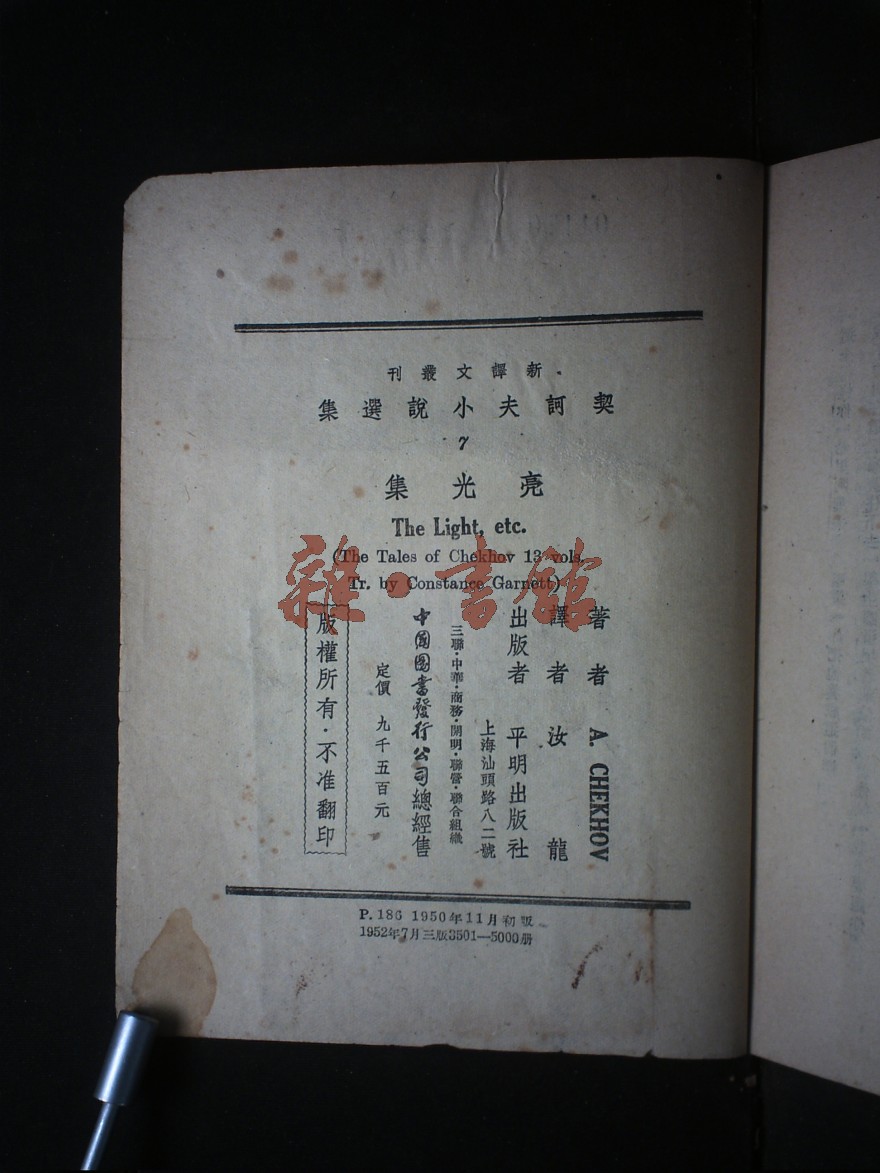 新譯文叢刊
契訶夫小說選集
7
亮光集
The Light, etc.
(The Tales of Chekhov 13 vols.
Tr. by Constance Garnett)
著者 A. CHEKHOV
譯者 汝龍
出版者 平明出版社
上海汕頭路八二號
三聯·中華·商務·開明·聯營·聯合組織
中國圖書發行公司總經售
定價 九千五百元
版權所有·不准翻印
P. 186 1950年11月初版
1952年7月三版3501—5000册
雜·書館